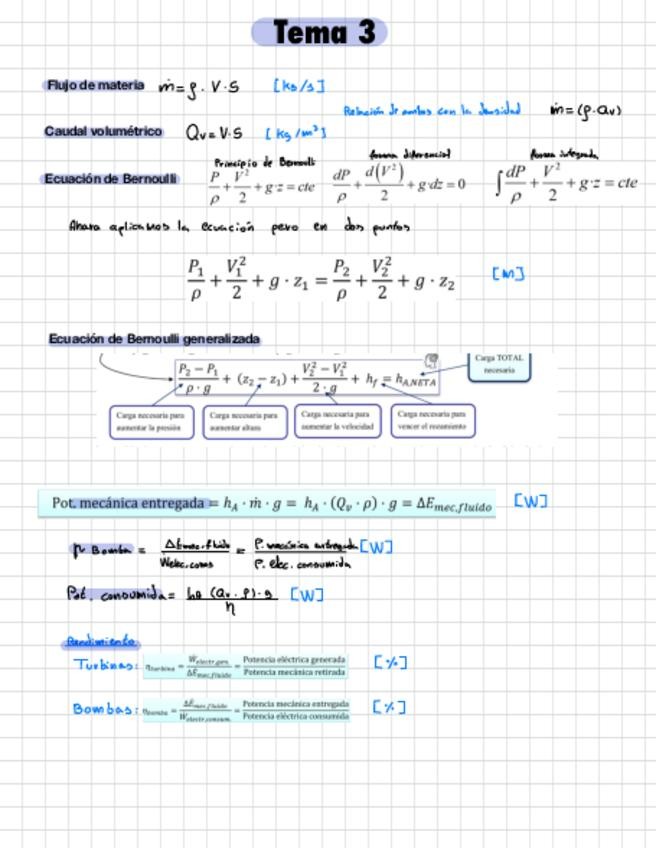 Tema 3
Flujo de materia ṁ = ρ · V · S [kg/s]
Relación de ambos con la densidad ṁ = (ρ · Qv)
Caudal volumétrico Qv = V · S [kg/m³]
Principio de Bernoulli forma diferencial forma integrada
Ecuación de Bernoulli P/ρ + V²/2 + g·z = cte dP/ρ + d(V²)/2 + g·dz = 0 ∫dP/ρ + V²/2 + g·z = cte
Ahora aplicamos la ecuación pero en dos puntos
P₁/ρ + V₁²/2 + g · z₁ = P₂/ρ + V₂²/2 + g · z₂ [m]
Ecuación de Bernoulli generalizada
(P₂ − P₁)/(ρ · g) + (z₂ − z₁) + (V₂² − V₁²)/(2 · g) + h_f = h_A,NETA
Carga TOTAL
necesaria
Carga necesaria para
aumentar la presión
Carga necesaria para
aumentar altura
Carga necesaria para
aumentar la velocidad
Carga necesaria para
vencer el rozamiento
Pot. mecánica entregada = h_A · ṁ · g = h_A · (Q_v · ρ) · g = ΔE_mec,fluido [W]
η Bomba = ΔEmec.fluido / Welec.cons = P. mecánica entregada / P. elec. consumida [W]
Pot. consumida = ha (Qv · ρ) · g / η [W]
Rendimiento
Turbinas: η_turbina = Ẇ_electr,gen. / ΔĖ_mec,fluido = Potencia eléctrica generada / Potencia mecánica retirada [%]
Bombas: η_bomba = ΔĖ_mec,fluido / Ẇ_electr,consum. = Potencia mecánica entregada / Potencia eléctrica consumida [%]